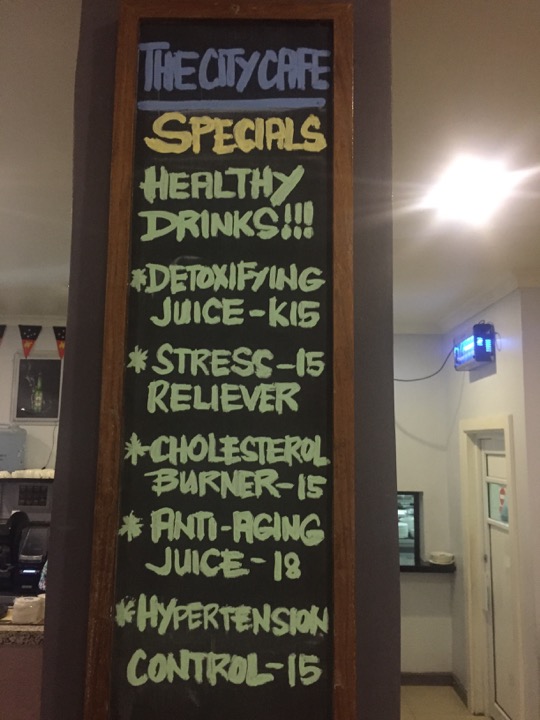 THE CITY CAFE
SPECIALS
HEALTHY
DRINKS!!!
*DETOXIFYING
JUICE-K15
*STRESS-15
RELIEVER
*CHOLESTEROL
BURNER-15
*ANTI-AGING
JUICE-18
*HYPERTENSION
CONTROL-15